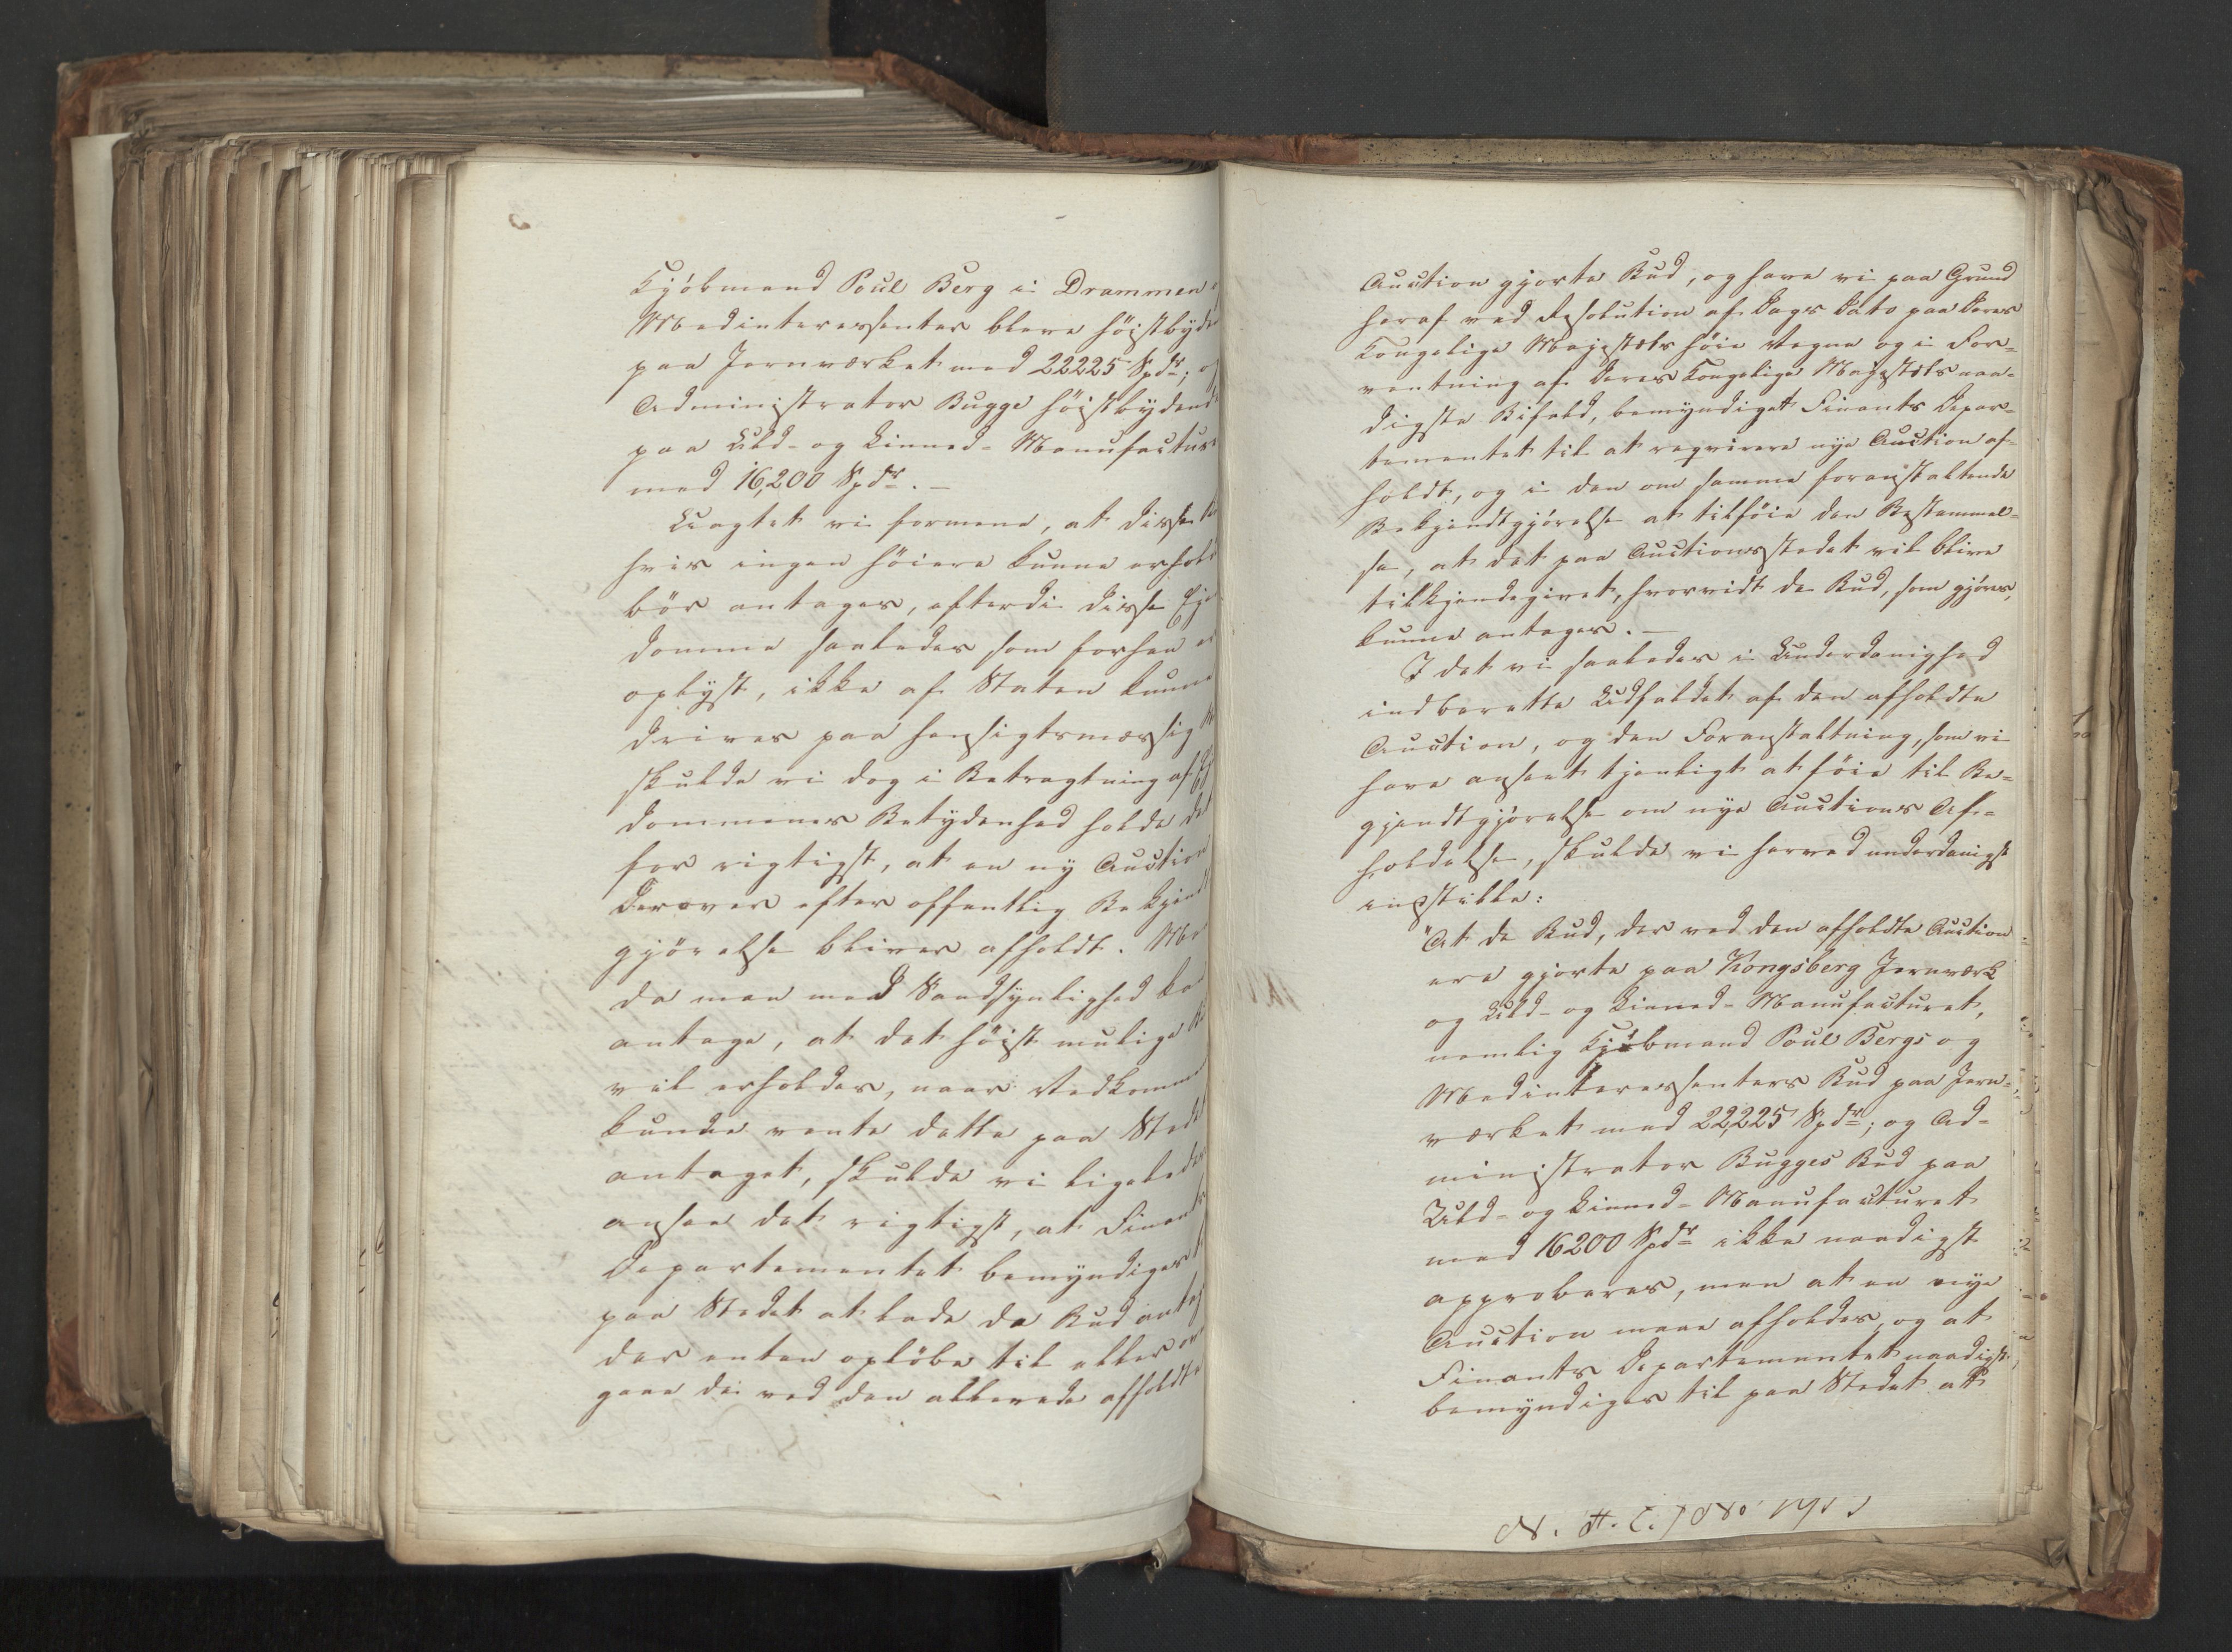 Kjöbmand Poul Berg i Drammen
Medinteressenter bleve höistbyde
paa Jernværket med 22225 Spdr; og
Administrator Bugge höistbydende
paa Uld- og Linned- Manufacture
med 16,200 Spdr. —
Uagtet vi formene, at disse
hvis ingen höiere kunne erhold
bör antages, efterdi disse Eje
domme saaledes som forhen er
oplyst, ikke af Staten kunne
drives paa hensigtsmæssig
skulde vi dog i Betragtning af Ej
dommenes Betydenhed holde det
for rigtigst, at en ny Auction
derover efter offentlig Bekjendt
gjörelse bliver afholdt. Me
da man med Sandsynlighed ka
antage, at det höist mulige
vil erholdes, naar Vedkomme
kunde vente dette paa Stedet
antaget, skulde vi ligeledes
ansee det rigtigst, at Finants
Departementet bemyndiges
paa Stedet at lade de Bud antag
der enten oplöbe til eller over
gaae de ved den allerede afholdte
Auction gjorte Bud, og have vi paa Grund
heraf ved Resolution af Dags Dato paa Deres
Kongelige Majestæts höie Vegne og i For=
ventning af Deres Kongelige Majestæts naa=
digste Bifald, bemyndiget Finants Depar=
tementet til at reqvirere nye Auction af=
holdt, og i den om samme foranstaltende
Bekjendtgjörelse at tilföie den Bestemmel=
se, at det paa Auctionsstedet vil blive
tilkjendegivet, hvorvidt de Bud, som gjöres,
kunne antages. —
I det vi saaledes i Underdanighed
indberette Udfaldet af den afholdte
Auction, og den Foranstaltning, som vi
have anseet tjenligt at föie til Be=
gjendtgjörelse om nye Auctions Af=
holdelse, skulde vi herved underdanigst
indstille:
"At de Bud, der ved den afholdte Auction
ere gjorte paa Kongsberg Jernværk
og Uld- og Linned- Manufacturet,
nemlig Kjöbmand Poul Bergs og
Medinteressenters Bud paa Jern=
værket med 22,225 Spdr; og Ad=
ministrator Bugges Bud paa
Uld- og Linned- Manufacturet
med 16200 Spdr ikke naadigst
approberes, men at en nye
Auction maae afholdes, og at
Finants Departementet naadigst
bemyndiges til paa Stedet at